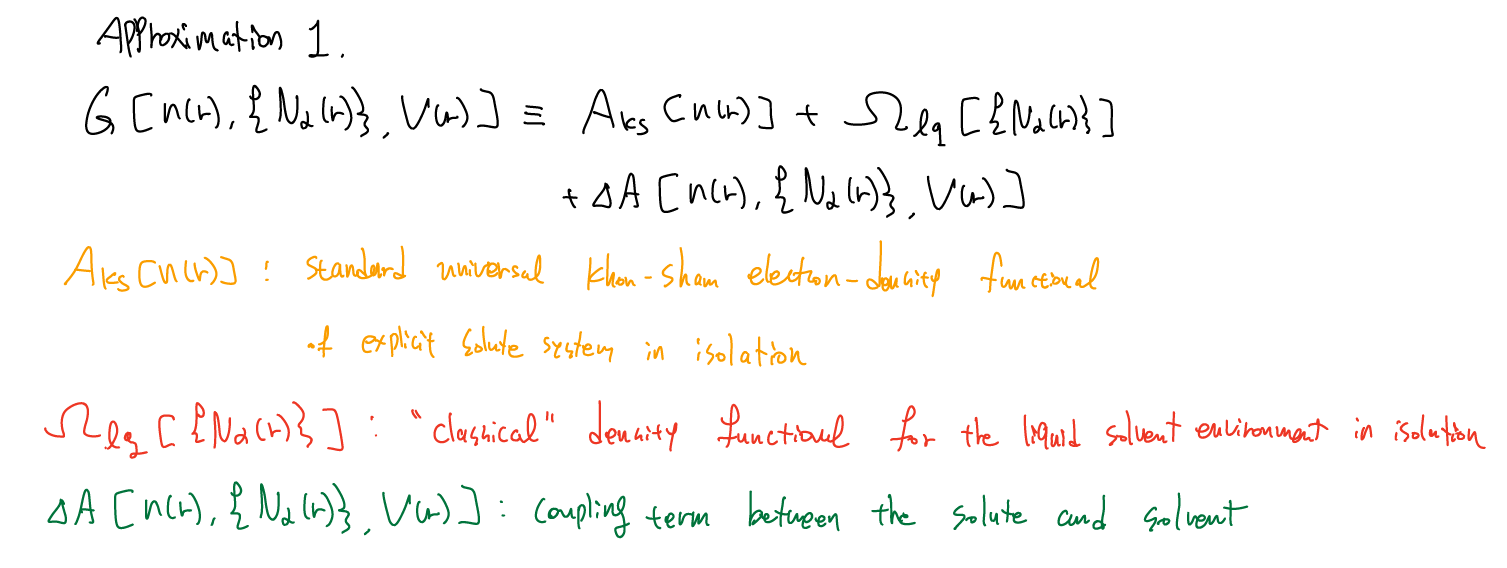 Approximation 1.
G[n(r), {Nα(r)}, V(r)] ≡ AKS[n(r)] + Ωlq[{Nα(r)}]
+ ΔA[n(r), {Nα(r)}, V(r)]
AKS[n(r)] : standard universal khon-sham electron-density functional
of explicit solute system in isolation
Ωlq[{Nα(r)}] : "classical" density functional for the liquid solvent environment in isolution
ΔA[n(r), {Nα(r)}, V(r)] : coupling term between the solute and solvent